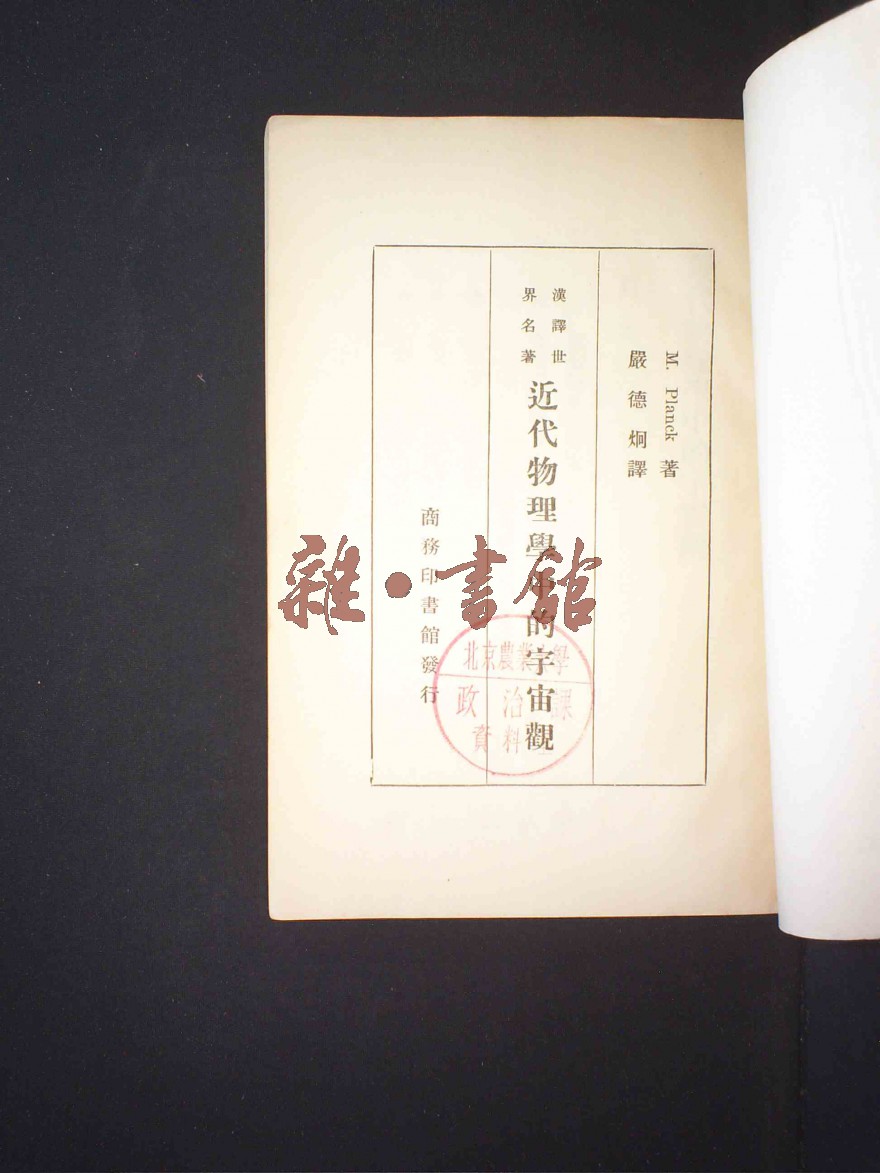 M. Planck 著
嚴德炯譯
漢譯世
界名著
近代物理學中的宇宙觀
商務印書館發行
雜·書館
北京農業大學
政治課
資料